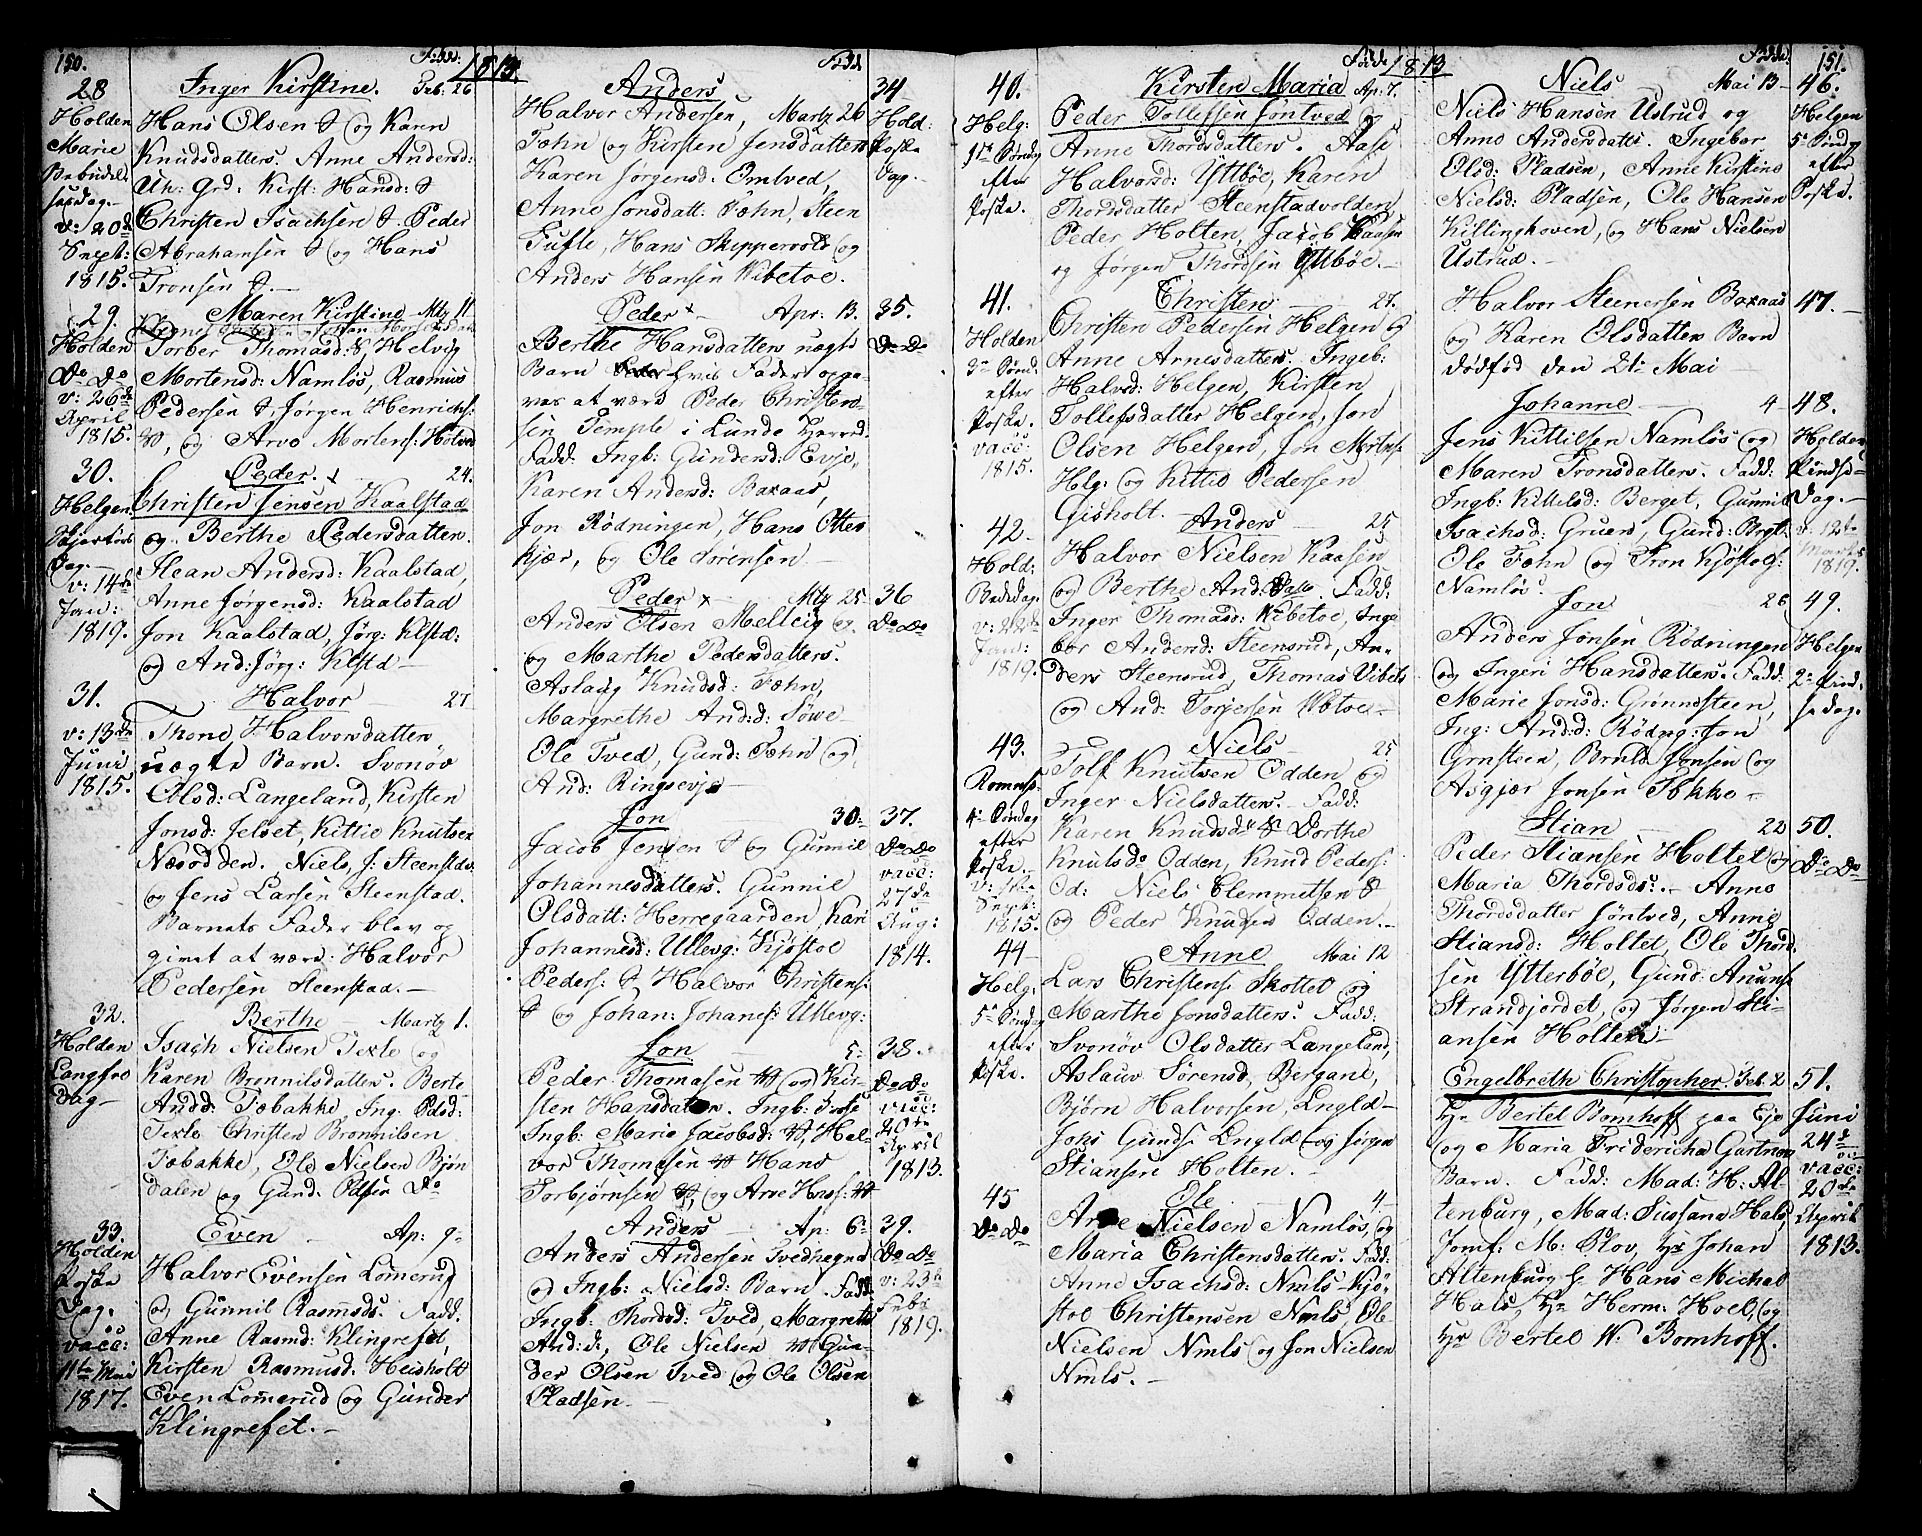 150.
Fødde 1813
28
Holden
Marie
Bebudel
sesdag.
v: 20d
Sept:
1815.
Inger Kirstine. Feb: 26
Hans Olsen & og Karen
Knudsdatter. Anne Andersd:
Christen Isachsen & Peder
Abrahamsen & og Hans
Tronsen &.
29.
Holden
Do Do
v: 26de
April
1815.
Maren Kirstine Mtz 11
Torber Thomasd: &, Helvig
Mortensd: Namløs, Rasmus
Pedersen &, Jørgen Henrichs:
og Arve Mortens: Holved
30.
Helgen
Skjertors
dag.
v: 14de
Jan:
1819.
Peder. 24.
Christen Jensen Kaalstad
og Berthe Pedersdatter.
Ilean Andersd: Kaalstad,
Anne Jørgensd: Kaalstad
Jon Kaalstad, Jørg: Klstd:
og And: Jørg: Klstd
31.
v: 13de
Juni
1815.
Halvor 27
Thone Halvorsdatter
uægte Barn. Svonøv
Olsd: Langeland, Kirsten
Jonsd: Jelset, Kittil Knutsen
Næsodden. Niels J: Steenstad
og Jens Larsen Steenstad.
Barnets Fader blev op
givet at være: Halvor
Pedersen Steenstad.
32.
Holden
Langfre
dag
Berthe Martz 1.
Isach Nielsen Texle og
Karen Brønnilsdatter. Berte
Andd: Tøbakke, Ing: Pdsd:
Texle Christen Brønnilsen
Tøbakke, Ole Nielsen Bjøn
dalen og Gund: Pdsen Do
33.
Holden
Paaske
Dag.
vacc:
11te Mai
1817.
Even Ap: 9
Halvor Evensen Lomerud
og Gunnil Rasmsds. Fadd.
Anne Rasmd: Klingrefet,
Kirsten Rasmusd. Heisholt
Even Lomerud og Gunder
Klingrefet.
Fødd.
Anders
Halvor Andersen, Martz 26
Fæhn og Kirsten Jensdatter
Karen Jørgensd: Omtved,
Anne Jonsdatt: Fæhn, Steen
Tufte, Hans Skippervold og
Anders Hansen Vibetoe.
34
Hold:
Paaske
dag.
Peder Apr: 13.
Berthe Hansdatter uægte
Barn hvis Fader opga-
ves at være Peder Christen-
sen Temple i Lunde Herred.
Fadd: Ingb: Gundersd: Evje,
Karen Andersd: Baxaas,
Jon Rødningen, Hans Otter
kjær, og Ole Sørensen
35.
Do Do
Peder Mtz 25
Anders Olsen Melleig
og Marthe Pedersdatter.
Aslaug Knudsd: Fæhn,
Margrethe And:d: Søwe
Ole Tved, Gund: Fæhn og
And: Ringsevje
36
Do Do
Jon 30:
Jacob Jensen & og Gunnil
Johannesdatter. Gunnil
Olsdatt: Herregaarden, Kari
Johannesd: Ullevg: Kjøstoe
Peders: & Halvor Christens:
& og Johan: Johanes: Ullevg:
37.
Do Do
vacc:
27de
Aug:
1814.
Jon 5:
Peder Thomasen og Kir-
sten Hansdatter. Ingb:
Ingb: Marie Jacobsd: Hal-
vor Thomesen Hans
Torbjørnsen og Arve Hans:
38.
Do Do
vacc:
20de
April
1813.
Anders Ap: 6
Anders Andersen Tvedhegna
og Ingb: Nielsd: Barn. Fadd
Ingb: Thordsd: Tved, Margrete
And:d:, Ole Nielsen Gun-
der Olsen Tved og Ole Olsen
Pladsen.
39.
Do Do
v: 23de
Feb:
1819.
151.
Fødde 1813
40.
Helg:
1te Søndag
efter
Paaske.
Kirsten Maria Ap: 7.
Peder Tollefsen Søntved og
Anne Thordsdatter. Aase
Halvorsd: Yttbøe, Karen
Thorsdatter Steenstadvolden
Peder Holten, Jacob Kaasen
og Jørgen Thordsen Yttbøe.
41.
Holden
3e Sønd:
efter
Paaske.
vacc:
1815.
Christen 27.
Christen Pedersen Helgen og
Anne Arnesdatter. Ingeb:
Halvd: Helgen, Kirsten
Tollefsdatter Helgen, Jon
Olsen Helgen, Jon Mortens:
Helg: og Kittil Pedersen
Gisholt.
42.
Hold:
Bededag.
v: 22de
Jan:
1819.
Anders 25
Halvor Nielsen Kaasen
og Berthe And: Fadd:
Inger Thomasd: Vibetoe, Inge
bor Andersd: Steensrud, An-
ders Steensrud, Thomas Vibeto
og And: Torjersen Vibtoe
43.
Romnes:
4e Søndag
efter
Paaske.
Sept:
1815.
Niels 25
Tolf Knutsen Odden og
Inger Nielsdatter. Fadd:
Karen Knudsd: & Dorthe
Knutsd: Odden, Knud Peders:
Od: Niels Clemmetsen &
og Peder Knudsen Odden.
44
Helg:
5e Søndag
efter
Paaske.
Anne Mai 12
Lars Christens: Skottet og
Marthe Jonsdatter. Fadd:
Svonøv Olsdatter Langeland,
Aslaug Sørensd, Bergane,
Bjørn Halvorsen, Lngld
Johs Gunds: Lngld og Jørgen
Stiansen Holten.
45
Do Do
Ole 4
Arve Nielsen Namløs, og
Maria Christensdatter. Fadd:
Anne Isachsd: Nmls Kjø-
stol Christensen Nmls, Ole
Nielsen Nmls og Jon Nielsen
Nmls.
Fødde
Niels Mai 13
Niels Hansen Ustrud og
Anne Andersdatter. Ingebor
Olsd: Pladsen, Anne Kirstine
Nielsd: Pladsen, Ole Hansen
Killinghoven, og Hans Nielsen
Ustrud.
46.
Helgen
5e Sønd:
efter
Paaske.
Halvor Steenersen Baxaas
og Karen Olsdatter Barn
dødfød den 21: Mai
47.
Johanne 4
Jens Kittilsen Namløs og
Maren Tronsdatter. Fadd:
Ingb: Kittelsd: Berget, Gunnil
Isachsd: Gruen, Gund: Brgt
Ole Fæhn og Tron Kjøstols:
Namløs.
48.
Holden
Pindse-
dag.
v: 12te
Martz
1819.
Jon 26
Anders Jonsen Rødningen
og Ingeri Hansdatter. Fadd.
Marie Jonsd: Grønnsteen,
Ing: And:d: Rødng: Jon
Grnsteen, Bruld Jonsen og
Asgjær Jonsen Fokke
49.
Helgen
2e Pind-
sedag.
Stian 22
Peder Stiansen Holtet og
Maria Thordsds. Anne
Thordsdatter Søntved, Anne
Stiansd: Holtet, Ole Thord
sen Ytterbøe, Gund: Anuns:
Strandjordet, og Jørgen Sti-
ansen Holten
50.
Do Do
Engelbreth Christopher. Feb. 2
Hr Bertel Bomhoff paa Eje
og Maria Fridericha Gartner
Barn. Fadd: Mad: H: Al-
tenburg, Mad: Susana Hals,
Jomf: M: Plov, Hr Johan
Altenburg Hr Hans Michel
Hals, Hr Herm: Hoel, og
Hr Bertel W. Bomhoff.
51.
Juni
24d
vacc:
20de
April
1813.